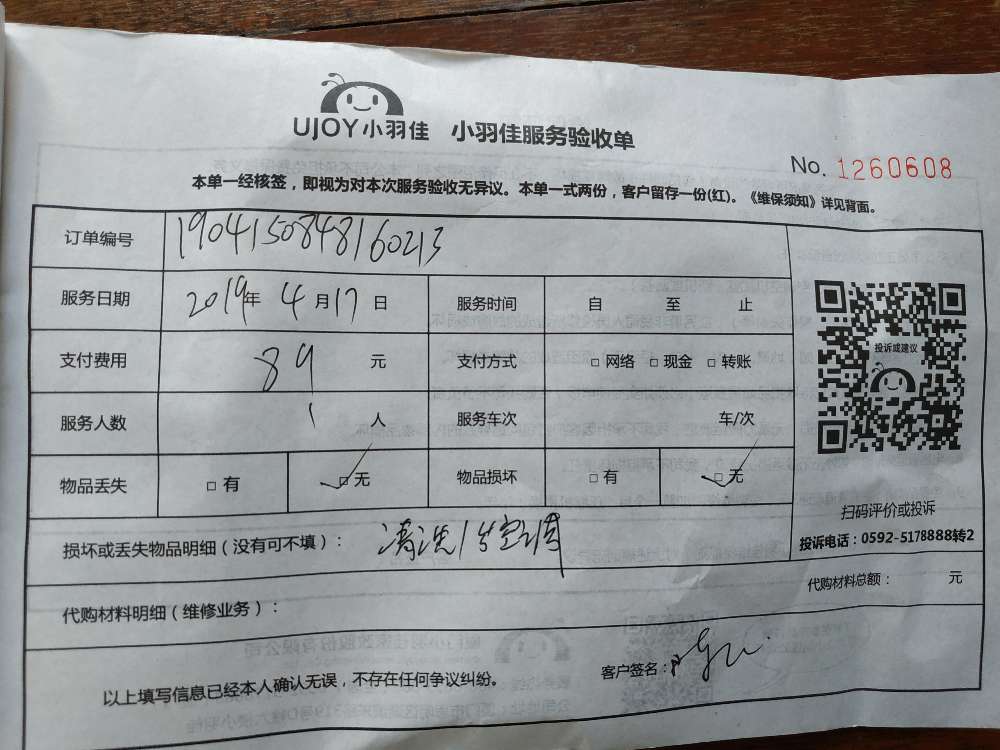 UJOY小羽佳 小羽佳服务验收单
No. 1260608
本单一经核签，即视为对本次服务验收无异议。本单一式两份，客户留存一份(红)。《维保须知》详见背面。
订单编号 1904150848160213
服务日期 2019年 4月17日 服务时间 自 至 止
支付费用 89 元 支付方式 □ 网络 □ 现金 □ 转账
服务人数 1 人 服务车次 车/次
物品丢失 □ 有 ☑ 无 物品损坏 □ 有 ☑ 无
投诉或建议
扫码评价或投诉
投诉电话：0592-5178888转2
损坏或丢失物品明细（没有可不填）： 清洗1台空调
代购材料总额： 元
代购材料明细（维修业务）：
以上填写信息已经本人确认无误，不存在任何争议纠纷。
客户签名：